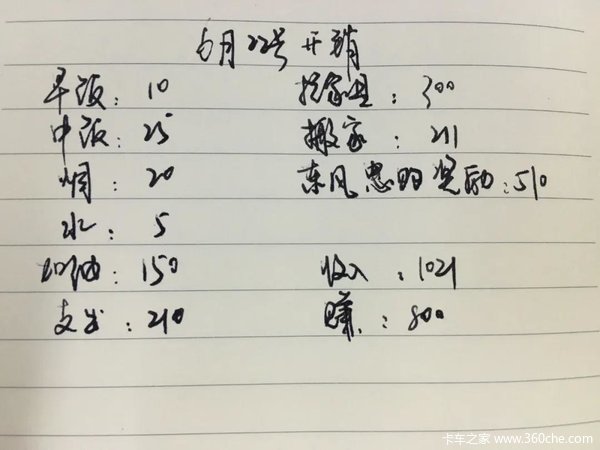 6月22号开销
早饭：10
中饭：25
烟：20
水：5
加油：150
支出：210
：300
搬家：211
东风 的奖励：510
收入：1021
赚：800
卡车之家 www.360che.com